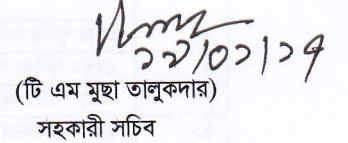 ২৯/০১/১৭
(টি এম মুছা তালুকদার)
সহকারী সচিব